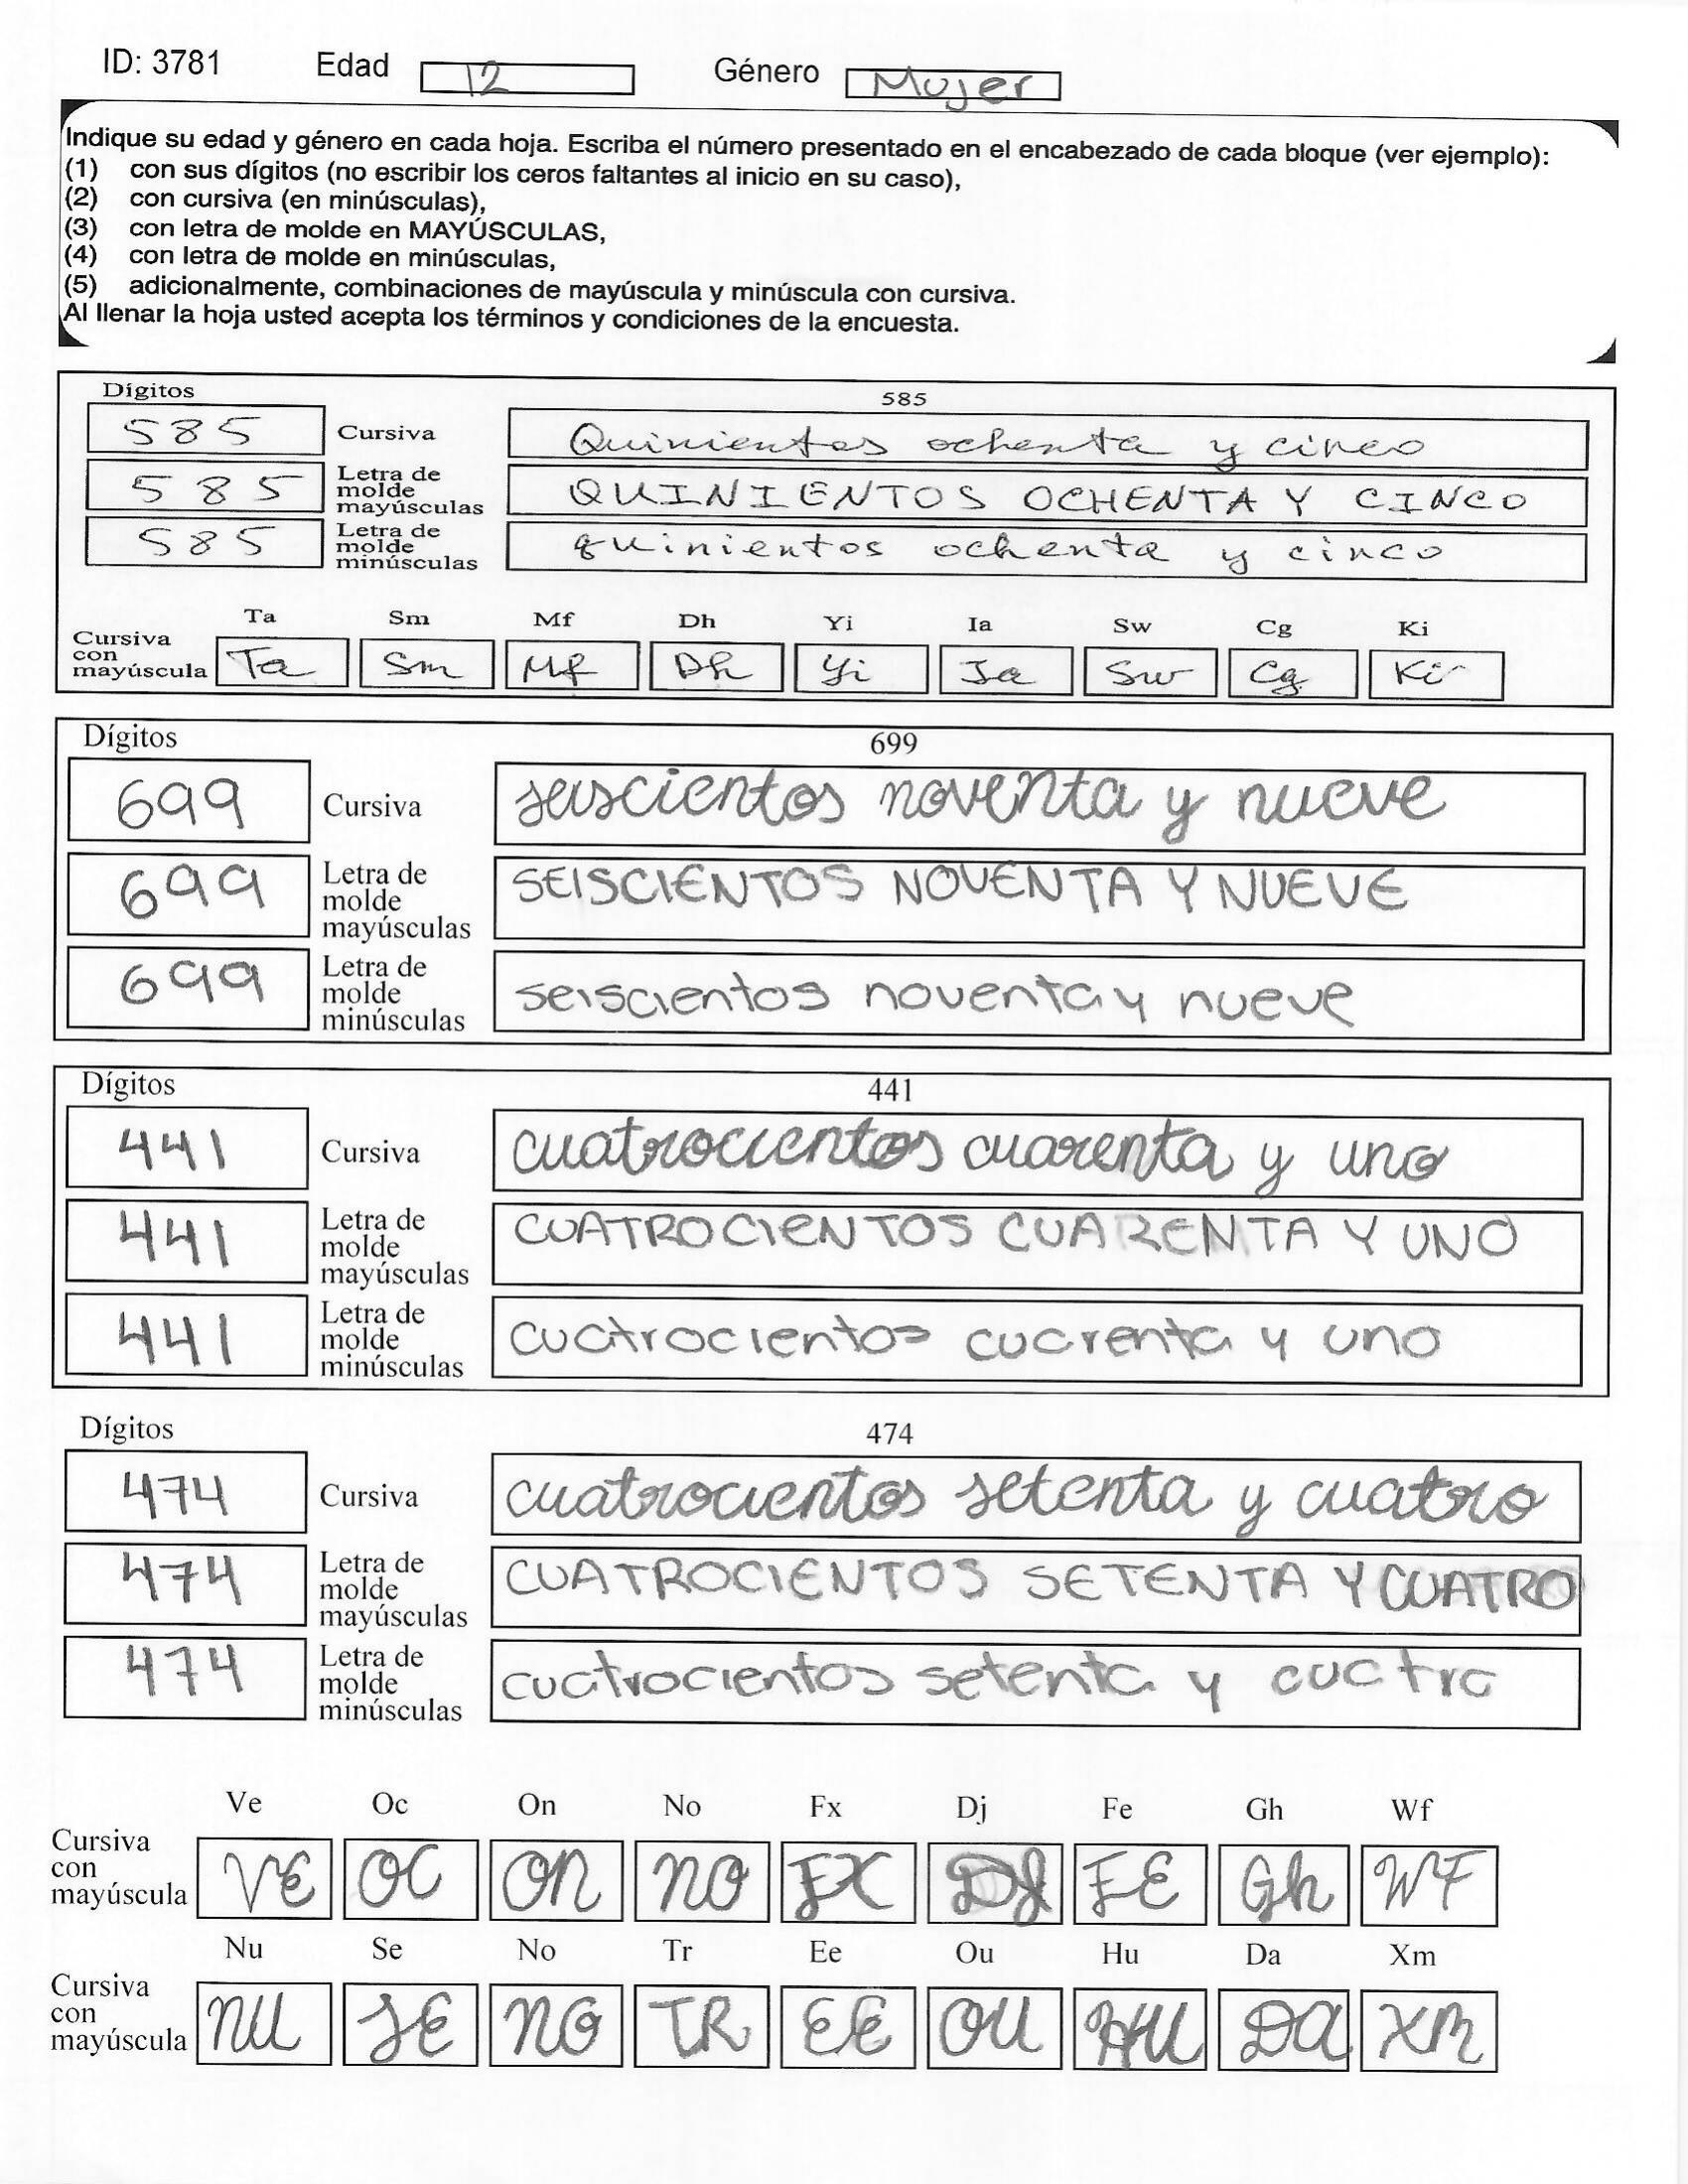 ID: 3781 Edad 12 Género Mujer
Indique su edad y género en cada hoja. Escriba el número presentado en el encabezado de cada bloque (ver ejemplo):
(1) con sus dígitos (no escribir los ceros faltantes al inicio en su caso),
(2) con cursiva (en minúsculas),
(3) con letra de molde en MAYÚSCULAS,
(4) con letra de molde en minúsculas,
(5) adicionalmente, combinaciones de mayúscula y minúscula con cursiva.
Al llenar la hoja usted acepta los términos y condiciones de la encuesta.
Dígitos 585
585 Cursiva Quinientos ochenta y cinco
585 Letra de molde mayúsculas QUINIENTOS OCHENTA Y CINCO
585 Letra de molde minúsculas quinientos ochenta y cinco
Ta Sm Mf Dh Yi Ia Sw Cg Ki
Cursiva con mayúscula Ta Sm Mf Dh Yi Ia Sw Cg Ki
Dígitos 699
699 Cursiva seiscientos noventa y nueve
699 Letra de molde mayúsculas SEISCIENTOS NOVENTA Y NUEVE
699 Letra de molde minúsculas seiscientos noventa y nueve
Dígitos 441
441 Cursiva cuatrocientos cuarenta y uno
441 Letra de molde mayúsculas CUATROCIENTOS CUARENTA Y UNO
441 Letra de molde minúsculas cuatrocientos cuarenta y uno
Dígitos 474
474 Cursiva cuatrocientos setenta y cuatro
474 Letra de molde mayúsculas CUATROCIENTOS SETENTA Y CUATRO
474 Letra de molde minúsculas cuatrocientos setenta y cuatro
Ve Oc On No Fx Dj Fe Gh Wf
Cursiva con mayúscula VE OC ON NO FX DJ FE Gh WF
Nu Se No Tr Ee Ou Hu Da Xm
Cursiva con mayúscula NU SE NO TR EE OU HU DA XM